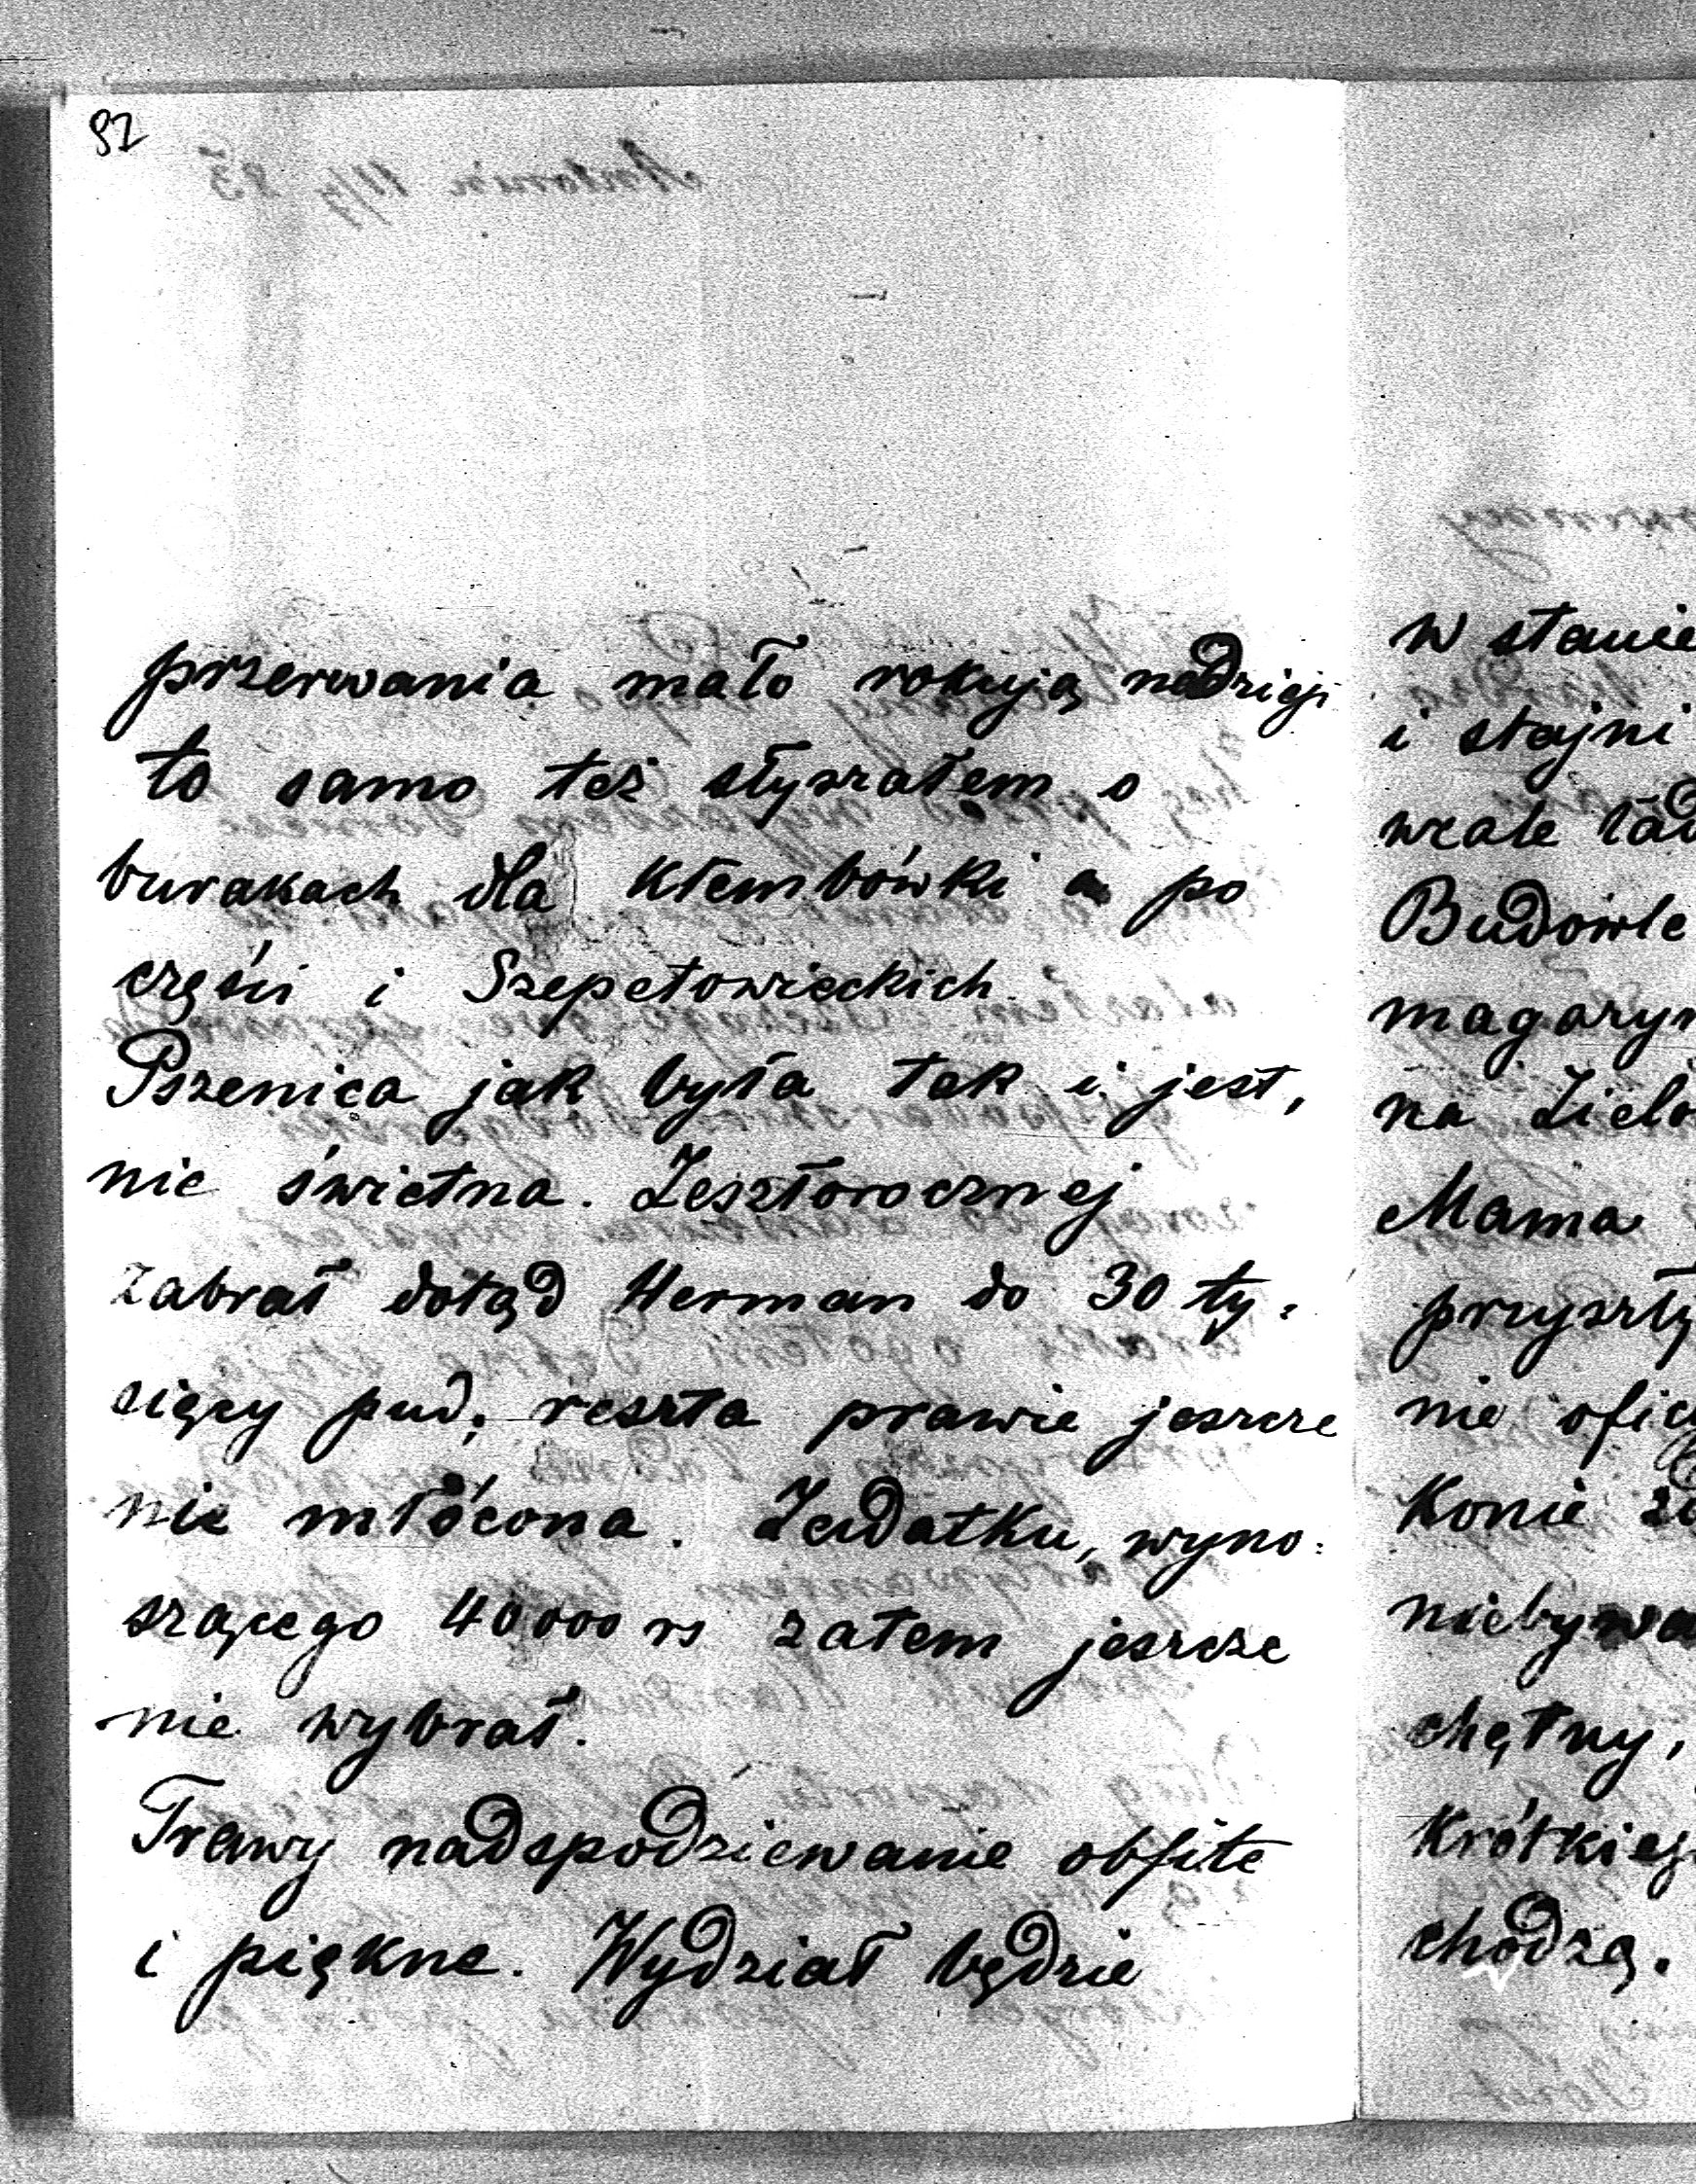 92
przerwania mało rokują nadziei
to samo też słyszałem o
burakach dla Kłembówki a po
części i Szepetowieckich
Pszenica jak była tak i jest,
nie świetna. Zeszłorocznej
zabrał dotąd Herman do 30 ty:
sięcy pud, reszta prawie jeszcze
nie młócona. Zadatku, wyno:
szącego 40000 rs zatem jeszcze
nie wybrał.
Trawy nadspodziewanie obfite
i piękne. Wydział będzie
w stanie
i stajni
wcale ład
Budowle
magazyn
na Zielo
Mama
przyszły
nie ofic
Konie
niebywa
chętny,
Krótkieg
chodzą.